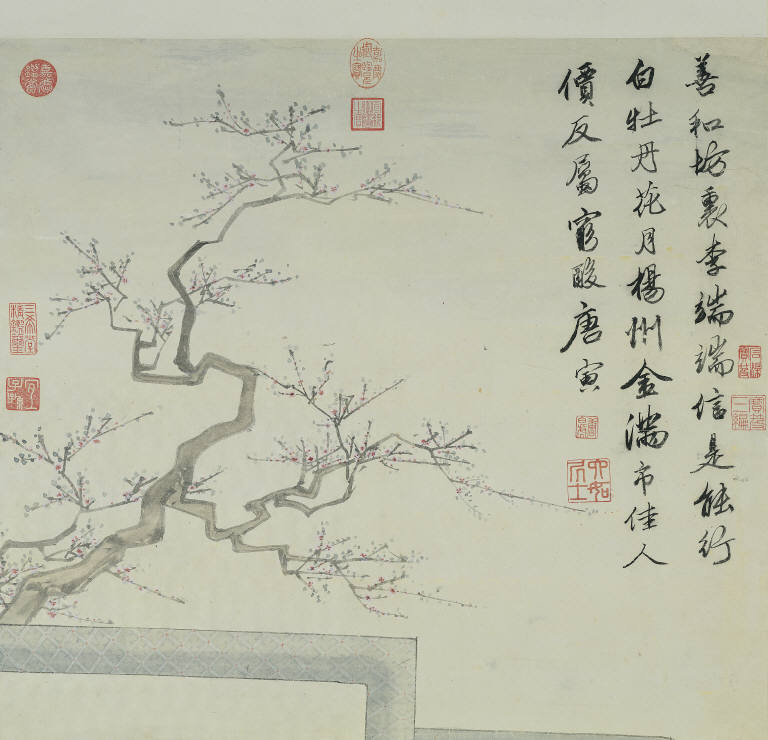 善和坊裏李端端信是能行
白牡丹花月楊州金滿市佳人
價反屬窮酸唐寅
六如居士